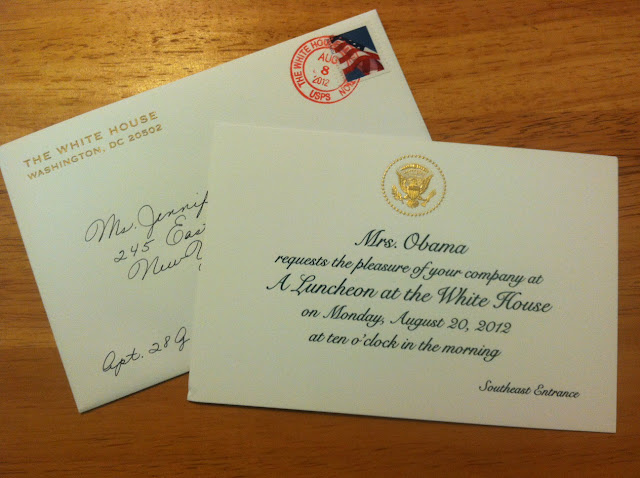 THE WHITE HOUSE
AUG
8
2012
USPS
THE WHITE HOUSE
WASHINGTON, DC 20502
Ms.
245
Apt. 28G
Mrs. Obama
requests the pleasure of your company at
A Luncheon at the White House
on Monday, August 20, 2012
at ten o'clock in the morning
Southeast Entrance